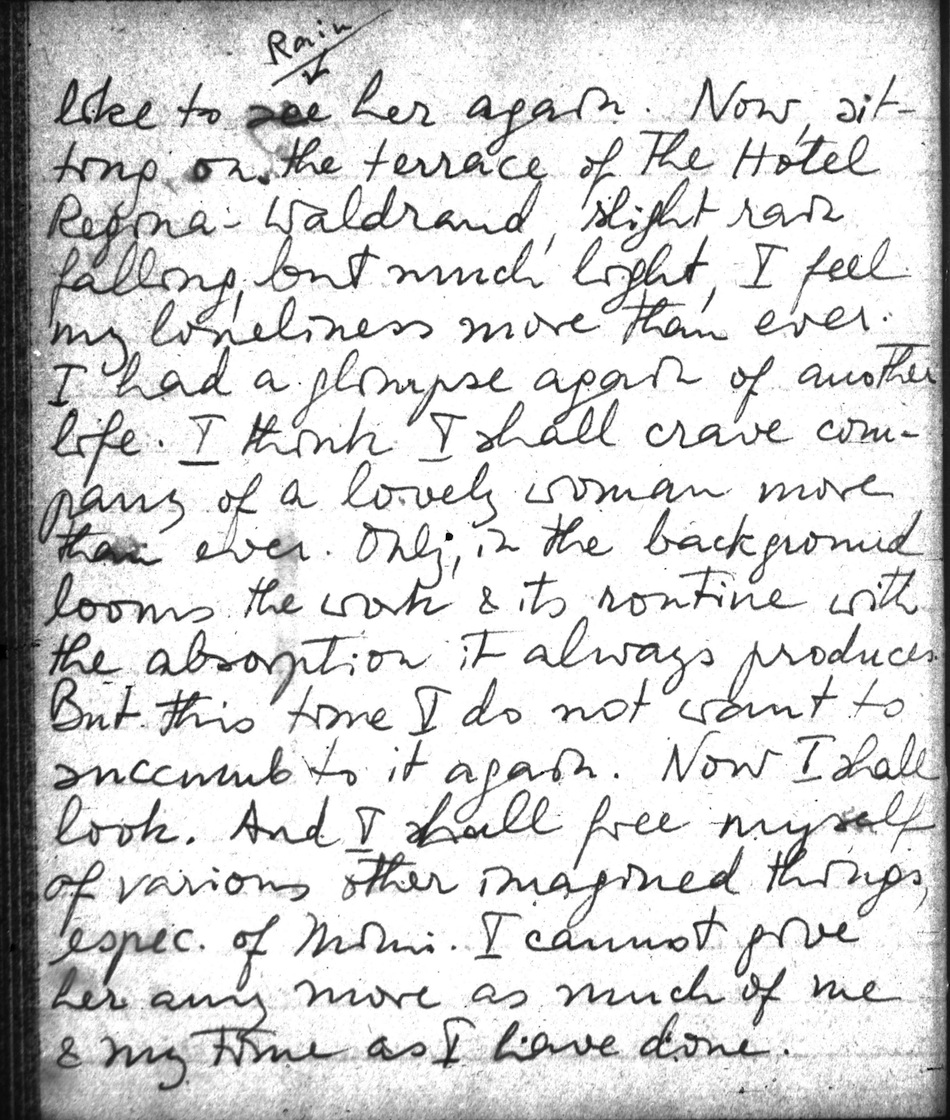 Rain
like to see her again. Now, sit-
ting on the terrace of The Hotel
Regina-Waldrand, slight rain
falling, but much light, I feel
my loneliness more than ever.
I had a glimpse again of another
life. I think I shall crave com-
pany of a lovely woman more
than ever. Only, in the background
looms the work & its routine with
the absorption it always produces.
But this time I do not want to
succumb to it again. Now I shall
look. And I shall free myself
of various other imagined things,
espec. of Mimi. I cannot give
her any more as much of me
& my time as I have done.